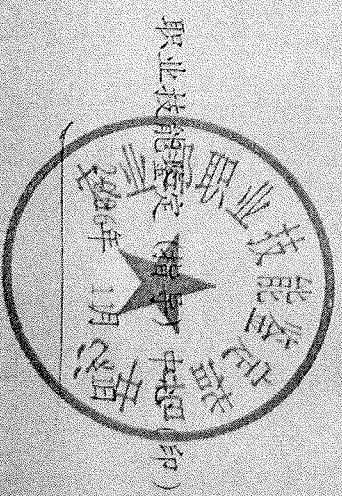 职业技能鉴定（指导）中心（印）
年 1月 日
职业技能鉴定指导中心